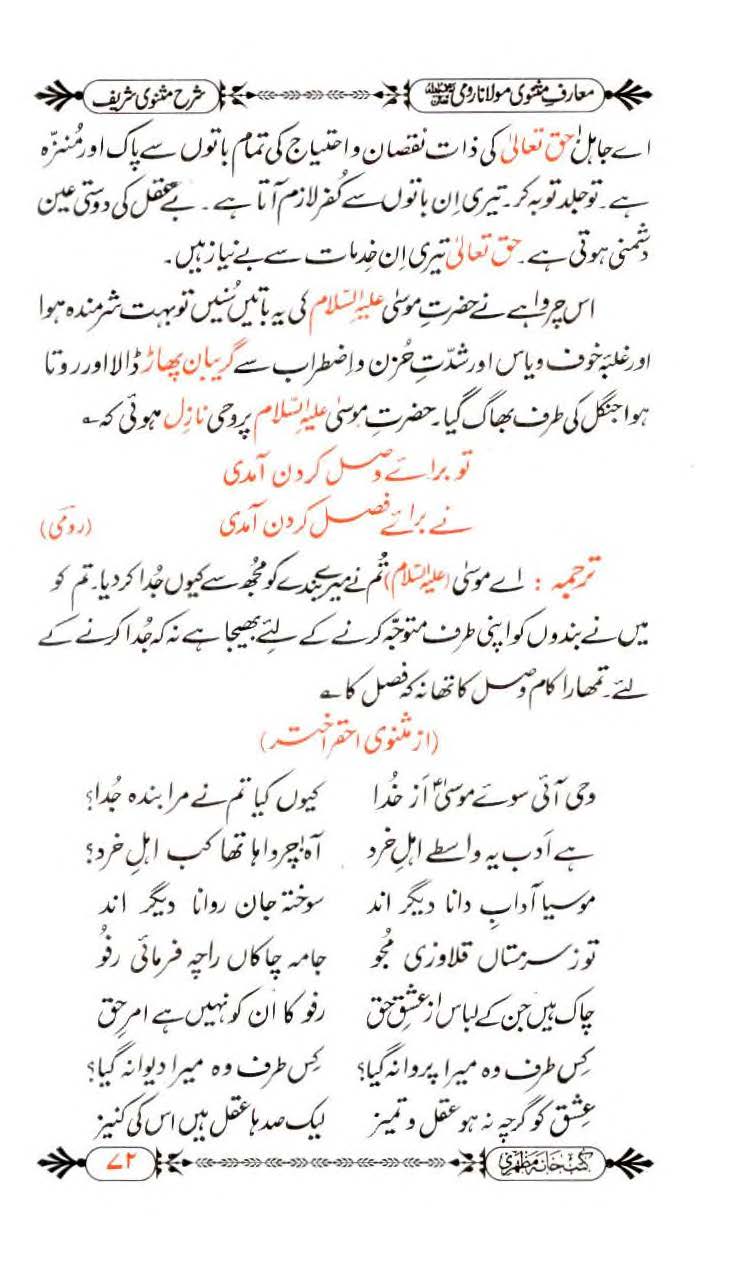 معارفِ مثنوی مولانا رومی شرح مثنوی شریف
اے جاہل! حق تعالیٰ کی ذات نقصان و احتیاج کی تمام باتوں سے پاک اور مُنزّہ
ہے۔ تو جلد توبہ کر۔ تیری اِن باتوں سے کُفر لازم آتا ہے۔ بے عقل کی دوستی عین
دشمنی ہوتی ہے۔ حق تعالیٰ تیری اِن خِدمات سے بے نیاز ہیں۔
اس چرواہے نے حضرتِ موسیٰ علیہ السّلام کی یہ باتیں سُنیں تو بہت شرمندہ ہوا
اور غلبۂ خوف و یاس اور شدّتِ حُزن و اِضطراب سے گریبان پھاڑ ڈالا اور روتا
ہوا جنگل کی طرف بھاگ گیا۔ حضرتِ موسیٰ علیہ السّلام پر وحی نازِل ہوئی کہ ؎
تو برائے وصل کردن آمدی
نے برائے فصل کردن آمدی (رومی)
ترجمہ : اے موسیٰ (علیہ السّلام) تُم نے میرے بندے کو مجُھ سے کیوں جُدا کردیا۔ تم کو
میں نے بندوں کو اپنی طرف متوجّہ کرنے کے لئے بھیجا ہے نہ کہ جُدا کرنے کے
لئے۔ تمھارا کام وصل کا تھا نہ کہ فصل کا ؎
(از مثنوی احقر اختر)
وحی آئی سوئے موسیٰؑ اَز خُدا کیوں کیا تم نے مرا بندہ جُدا؟
ہے اَدب یہ واسطے اہلِ خرد آہ! چرواہا تھا کب اہلِ خرد؟
موسیا آدابِ دانا دیگر اند سوختہ جان روانا دیگر اند
تو ز سرمستاں قلاوزی مجُو جامہ چاکاں را چہ فرمائی رفُو
چاک ہیں جن کے لباس از عشقِ حق رفو کا اُن کو نہیں ہے امرِ حق
کِس طرف وہ میرا پروانہ گیا؟ کِس طرف وہ میرا دیوانہ گیا؟
عِشق کو گرچہ نہ ہو عقل و تمیز لیک صدہا عقل ہیں اس کی کنیز
کتب خانہ مظہری ۷۲